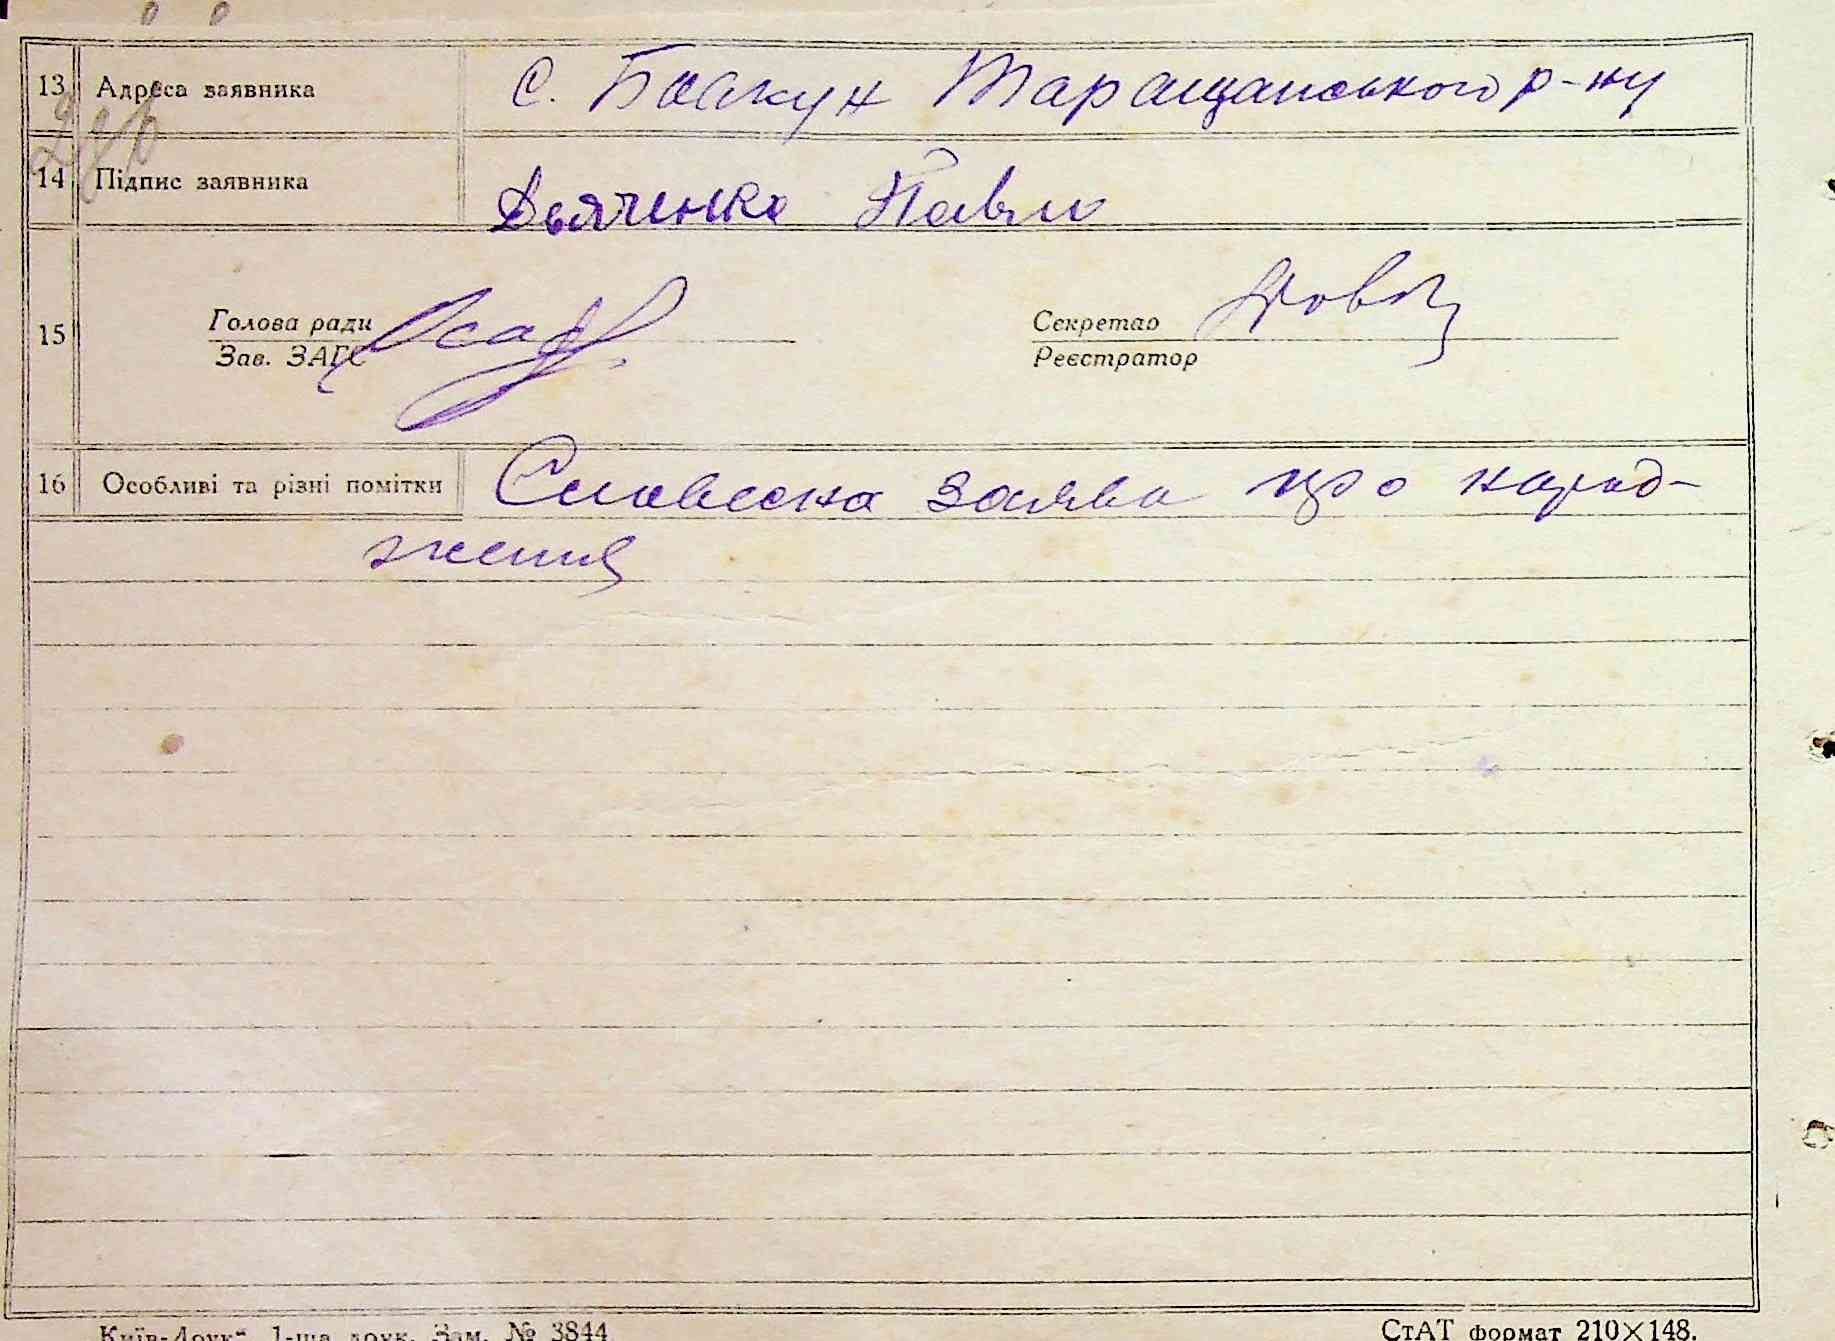 13 Адреса заявника с. Бовкун Таращанського р-ну
14 Підпис заявника Дьяченко Павло
15
Голова ради Секретар
Зав. ЗАГС Реєстратор
16 Особливі та різні помітки Словесна заява про народ-
ження
Київ-Друк“ 1-ша друк. Зам. № 3844 СтАТ формат 210×148.